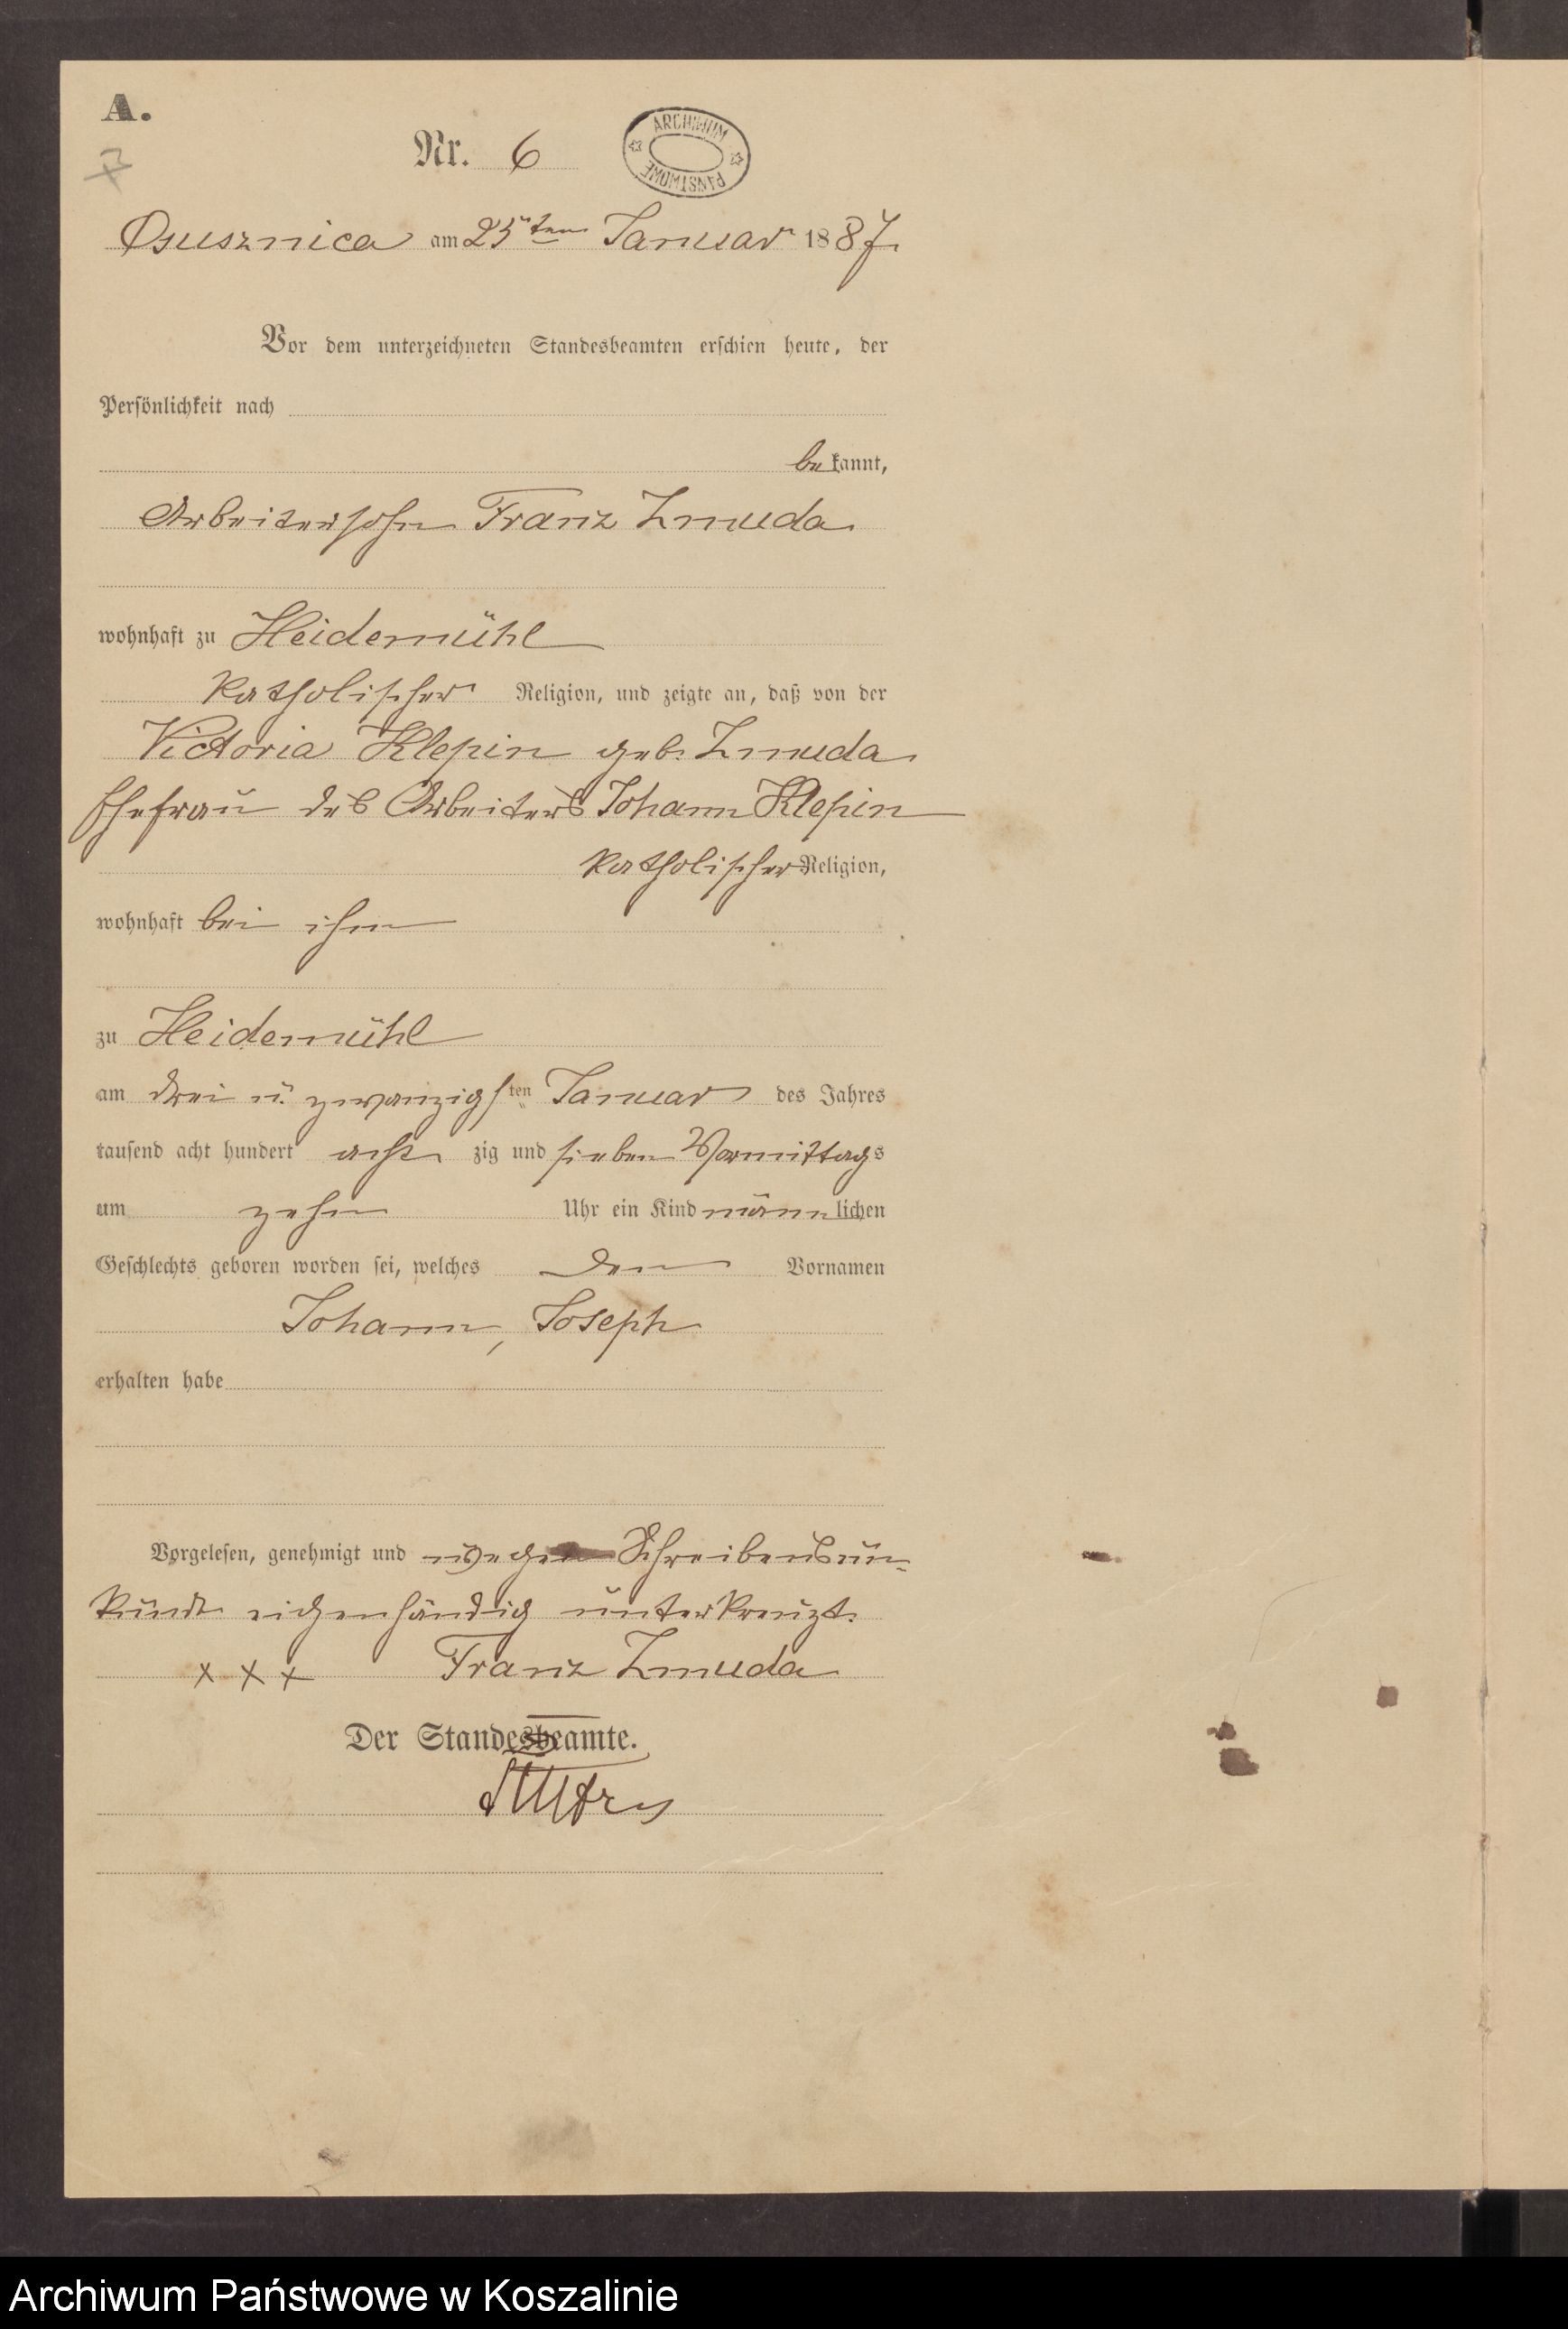 A.
7
Nr. 6
ARCHIWUM PAŃSTWOWE
Osusznica am 25ten Januar 1887.
Vor dem unterzeichneten Standesbeamten erschien heute, der
Persönlichkeit nach
bekannt,
Arbeitersohn Franz Zmuda
wohnhaft zu Heidemühl
katholischer Religion, und zeigte an, daß von der
Victoria Klepin geb. Zmuda
Ehefrau des Arbeiters Johann Klepin
katholischer Religion,
wohnhaft bei ihm
zu Heidemühl
am drei u. zwanzigsten Januar des Jahres
tausend acht hundert acht zig und sieben Vormittags
um zehn Uhr ein Kind männlichen
Geschlechts geboren worden sei, welches den Vornamen
Johann, Joseph
erhalten habe
Vorgelesen, genehmigt und wegen Schreibensun-
kunde eigenhändig unterkreuzt.
x x x Franz Zmuda
Der Standesbeamte.
Archiwum Państwowe w Koszalinie